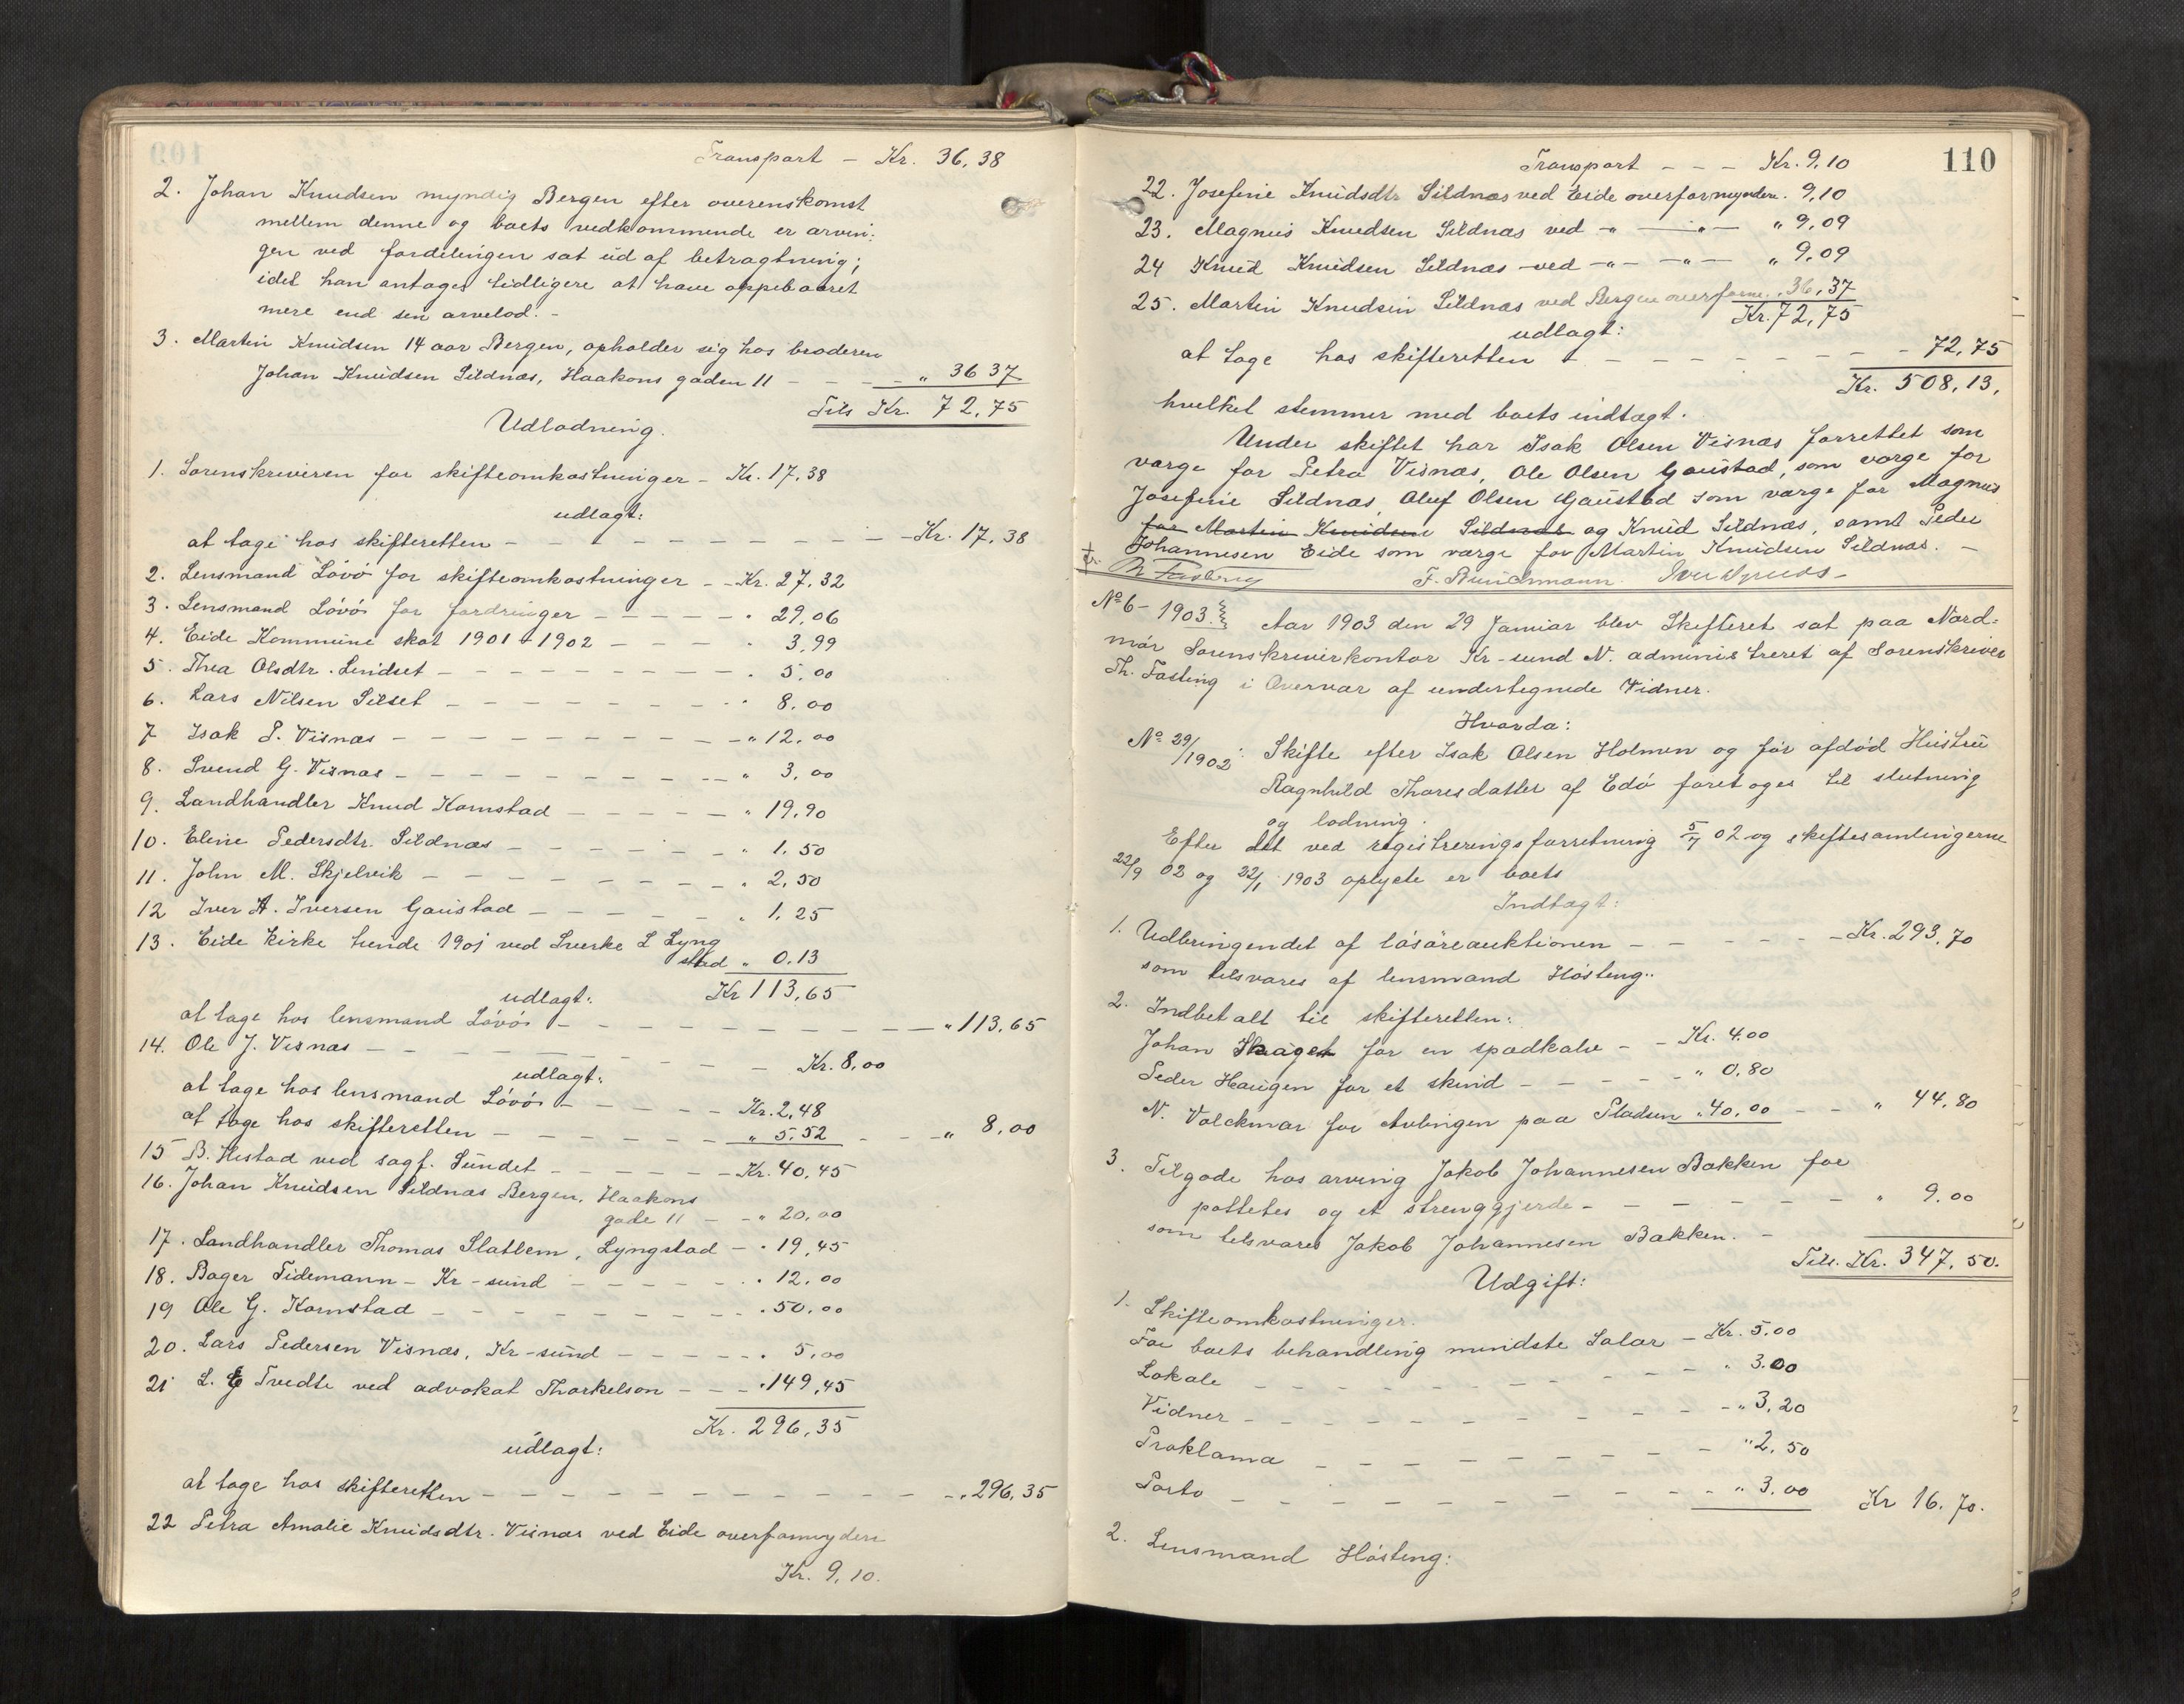 Transport – Kr. 36,38
2. Johan Knudsen myndig Bergen efter overenskomst
mellem denne og boets vedkommende er arvin:
gen ved fordelingen sat ud af betragtning;
idet han antages tidligere at have oppebaaret
mere end sin arvelod. –
3. Martin Knudsen 14 aar Bergen, opholder sig hos broderen
Johan Knudsen Sildnæs, Haakons gaden 11 – – – „ 36 37
Tils Kr. 72,75
Udlodning.
1. Sorenskriveren for skifteomkostninger – Kr. 17,38
udlagt:
at tage hos skifteretten – – – – – – – – – – – Kr. 17,38
2. Lensmand Lóvó for skifteomkostninger – – Kr. 27,32
3. Lensmand Lóvó for fordringer – – – – – „ 29,06
4. Eide Kommune skat 1901 + 1902 – – – „ 3,99
5. Thea Olsdtr. Lindset – – – – – – – – – „ 5,00
6. Lars Nilsen Silset – – – – – – – – „ 8,00
7 Isak P. Visnæs – – – – – – – – – – „ 12,00
8. Svend G. Visnæs – – – – – – – – – „ 3,00
9. Landhandler Knud Kornstad – – – – – „ 19,90
10. Eline Pedersdtr. Sildnæs – – – – – – – „ 1,50
11. John M. Skjelvik – – – – – – – – – „ 2,50
12 Iver A. Iversen Gaustad – – – – – „ 1,25
13. Eide kirke tiende 1901 ved Sverke L Lyng
stad „ 0.13
Kr 113,65
udlagt:
at tage hos lensmand Lóvó – – – – – – – – – – – „ 113,65
14. Ole J. Visnæs – – – – – – – – Kr. 8,00
udlagt:
at tage hos lensmand Lóvó – – – – – Kr. 2,48
at tage hos skifteretten – – – – – – – „ 5,52 – – – „ 8,00
15 B. Hestad ved sagf. Sundet – – – – – – Kr. 40,45
16. Johan Knudsen Sildnæs Bergen, Haakons
gade 11 – – „ 20,00
17. Landhandler Thomas Slatlem, Lyngstad – „ 19,45
18. Bager Tidemann – Kr-sund – – – – – – „ 12,00
19 Ole G. Kornstad – – – – – – – – – „ 50,00
20. Lars Pedersen Visnæs, Kr-sund – – – – – „ 5,00
21 L. E Tvedte ved advokat Thorkelson – – – „ 149,45
Kr. 296,35
udlagt:
at tage hos skifteretten – – – – – – – – – – – – „ 296,35
22 Petra Amalie Knudsdtr. Visnæs ved Eide overformynderi
Kr. 9,10.
110
Transport – – – Kr. 9,10
22. Josefine Knudsdtr Sildnæs ved Eide overformynderi. 9,10
23. Magnus Knudsen Sildnæs ved –„– –„– „ 9,09
24 Knud Knudsen Sildnæs –ved –„– –„– „ 9,09
25. Martin Knudsen Sildnæs ved Bergen overform. „ 36,37
Kr. 72,75
udlagt:
at tage hos skifteretten – – – – – – – – – 72,75
Kr. 508,13,
hvelket stemmer med boets indtægt.
Under skiftet har Isak Olsen Visnæs forrettet som
værge for Petra Visnæs, Ole Olsen Gaustad, som værge for
Josefine Sildnæs, Oluf Olsen Gaustad som værge for Magnus
for Martin Knudsen Sildnæs og Knud Sildnæs, samt Peder
Johannesen Eide som værge for Martin Knudsen Sildnæs. –
Th Fasting
No 6 – 1903. Aar 1903 den 29 Januar blev Skifteret sat paa Nord:
mør Sorenskriverkontor Kr-sund N. administreret af Sorenskriver
Th. Fasting i Overvær af undertegnede Vidner.
Hvorda:
No 29/1902: Skifte efter Isak Olsen Holmen og før afdød Hustru
Ragnhild Thoresdatter af Edó foretoges til slutning
og lodning.
Efter det ved registreringsforretning 5/7 02 og skiftesamlingerne
22/9 02 og 22/1 1903 oplyste er boets
Indtægt:
1. Udbringendet af lósóreauktionen – – – – – – Kr. 293,70
som tilsvares af lensmand Hósteng..
2. Indbetalt til skifteretten:
Johan Skaget for en spædkalv – – Kr. 4.00
Peder Haugen for et skind – – – – – „ 0,80
N. Volckmar for Avlingen paa Pladsen „ 40,00 – – „ 44,80
3. Tilgode hos arving Jakob Johannesen Bakken for
pottetes og et strenggjerde – – – – – – „ 9.00
som tilsvares Jakob Johannesen Bakken. –
Tils. Kr. 347,50.
Udgift:
1. Skifteomkostninger.
For boets behandling mindste Salar – Kr. 5.00
Lokale – – – – – – – – – – „ 3.00
Vidner – – – – – – – – – – – „ 3,20
Proklama – – – – – – – – – „ 2,50
Porto – – – – – – – – – – – „ 3,00 Kr 16,70.
2. Lensmand Hósteng: